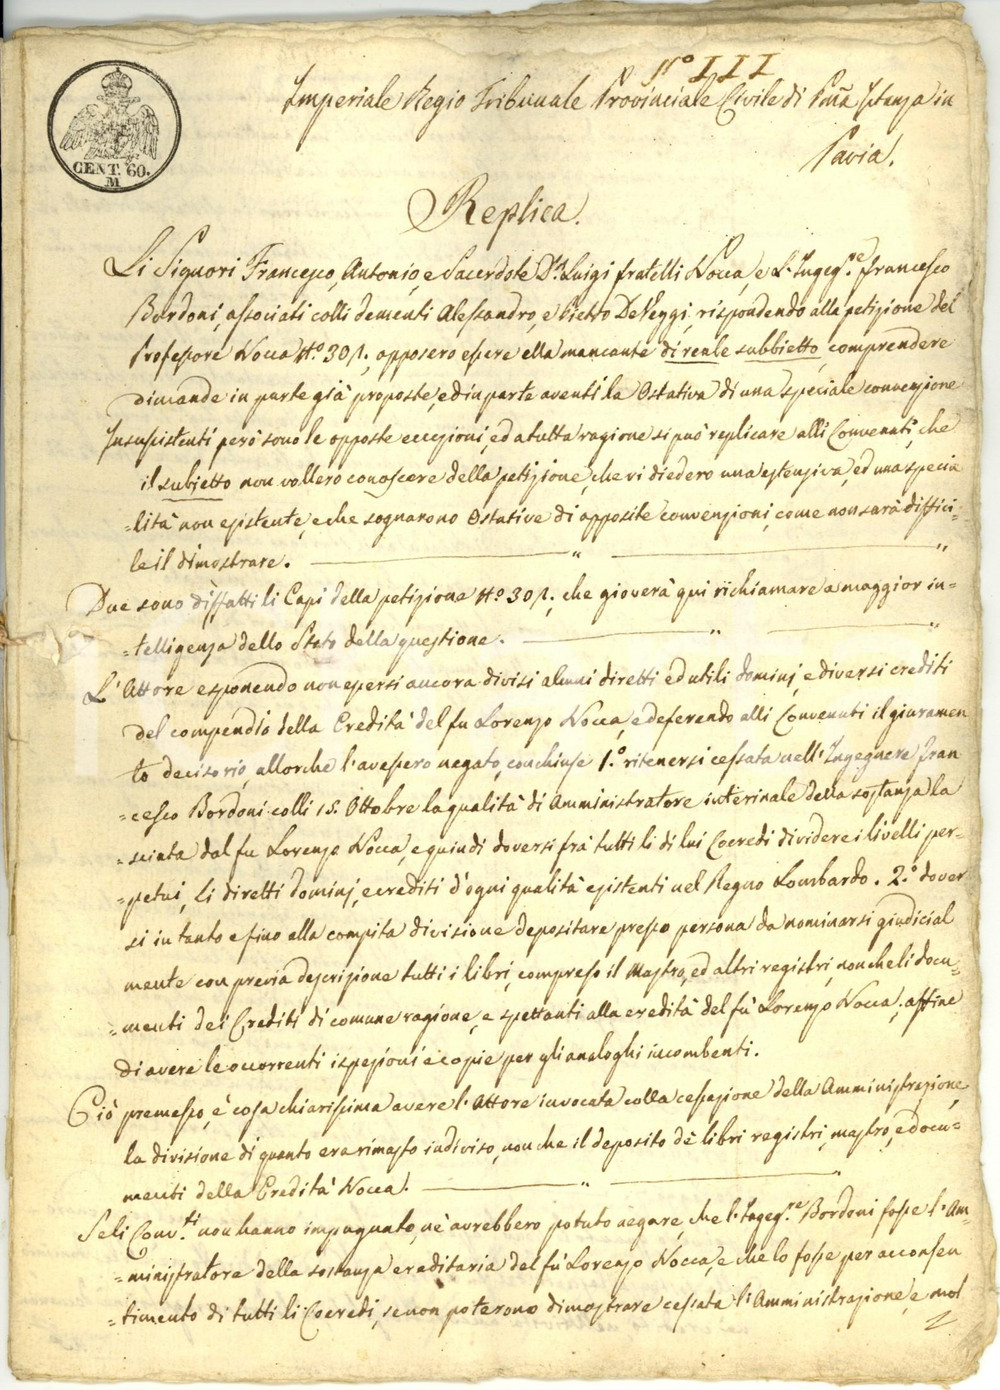 N.° III
CENT. 60.
M
Imperiale Regio Tribunale Provinciale Civile di Pma Istanza in
Pavia.
Replica.
Li Signori Francesco, Antonio, e Sacerdote Dr. Luigi fratelli Nocca, e l'Ingeg.re Francesco
Bordoni, associati colli dementi Alessandro, e Pietro Delleggi, rispondendo alla petizione del
Professore Nocca N.° 301., opposero essere ella mancante di reale subbietto, comprendere
dimande in parte già proposte, ed in parte aventi la Ostativa di una speciale convenzione
Insussistenti però sono le opposte eccezioni, ed a tutta ragione si può replicare alli Convenuti, che
il subietto non vollero conoscere della petizione, che vi diedero una estensiva, ed una specia
=lità non esistente, e che sognarono Ostative di apposite convenzioni, come non sarà diffici=
le il dimostrare. — " — "
Due sono diffatti li Capi della petizione N.° 301., che gioverà qui richiamare a maggior in=
=telligenza dello Stato della questione. — " — "
L'Attore esponendo non essersi ancora divisi alcuni diretti ed utili dominj, e diversi crediti
del compendio della Eredità del fu Lorenzo Nocca, e deferendo alli Convenuti il giuramen
to decisorio, allorche l'avessero negato, conchiuse 1.° ritenersi cessata nell'Ingegnere Fran
=cesco Bordoni colli 15. Ottobre la qualità di Amministratore interinale della sostanza la
=sciata dal fu Lorenzo Nocca, e quindi doversi frà tutti li di lui Coeredi dividere i livelli per=
=petui, li diretti dominj, e crediti d'ogni qualità esistenti nel Regno Lombardo. 2.° dover
si in tanto e fino alla compita divisione depositare presso persona da nominarsi giudicial
mente con previa descrizione tutti i libri, compreso il Mastro, ed altri registri, non che li docu=
=menti dei Crediti di comune ragione, e spettanti alla eredità del fù Lorenzo Nocca, affine
di avere le occorrenti ispezioni e copie per gli analoghi incombenti.
Ciò premesso, è cosa chiarissima avere l'Attore invocata colla cessazione della Amministrazione,
la divisione di quanto era rimasto indiviso, non che il deposito de' libri registri, mastro, e docu=
menti della Eredità Nocca. — " — "
Se li Conv.ti non hanno impugnato, nè avrebbero potuto negare, che l'Ingeg.re Bordoni fosse l'Am=
=ministratore della sostanza ereditaria del fù Lorenzo Nocca, e che lo fosse per acconsen
=timento di tutti li Coeredi, se non poterono dimostrare cessata l'Amministrazione, e mol